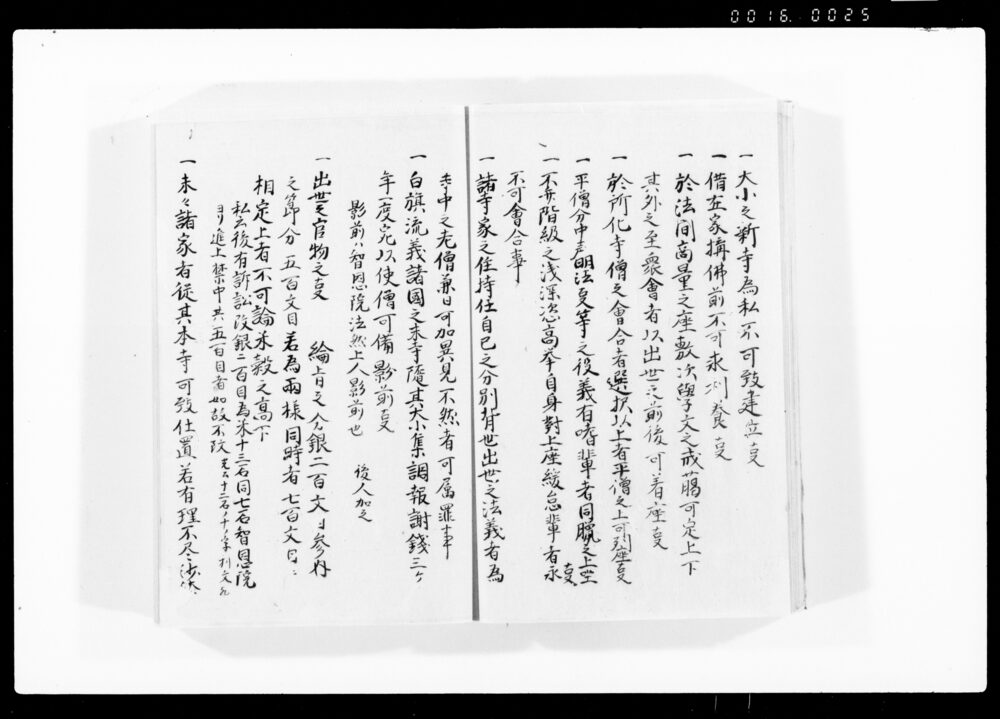 0016. 0025
一 大小之新寺為私不可致建立叓
一 借在家構佛前不可求利養叓
一 於法問商量之座敷次學文之戒﨟可定上下
其外之至衆會者以出世之前後可着座叓
一 於所化寺僧之會合者選択以上者平僧之上可列座叓
一 平僧分中声明法叓等之役義有嗜輩者同臘之上座叓
一 不弁階級之浅深恣高挙自身對上座緩怠輩者永
不可會合事
一 諸寺家之住持任自己之分別背世出世之法義者為
寺中之老僧兼日可加異見不然者可属罪事
一 白旗流義諸國之末寺随其大小集調報謝錢三ケ
年一度宛以使僧可備影前叓
影前ハ智恩院法然上人影前也 後人加之
一 出世之官物之叓 綸旨之分銀二百文目参内
之節分五百文目若為両様同時者七百文目ニ
相定上者不可論米穀之高下
私云後有訴訟改銀二百目為米十三石同七石智恩院
ヨリ進上禁中其五百目者如故不改
一 末々諸家者従其本寺可致仕置若有理不尽沙汰